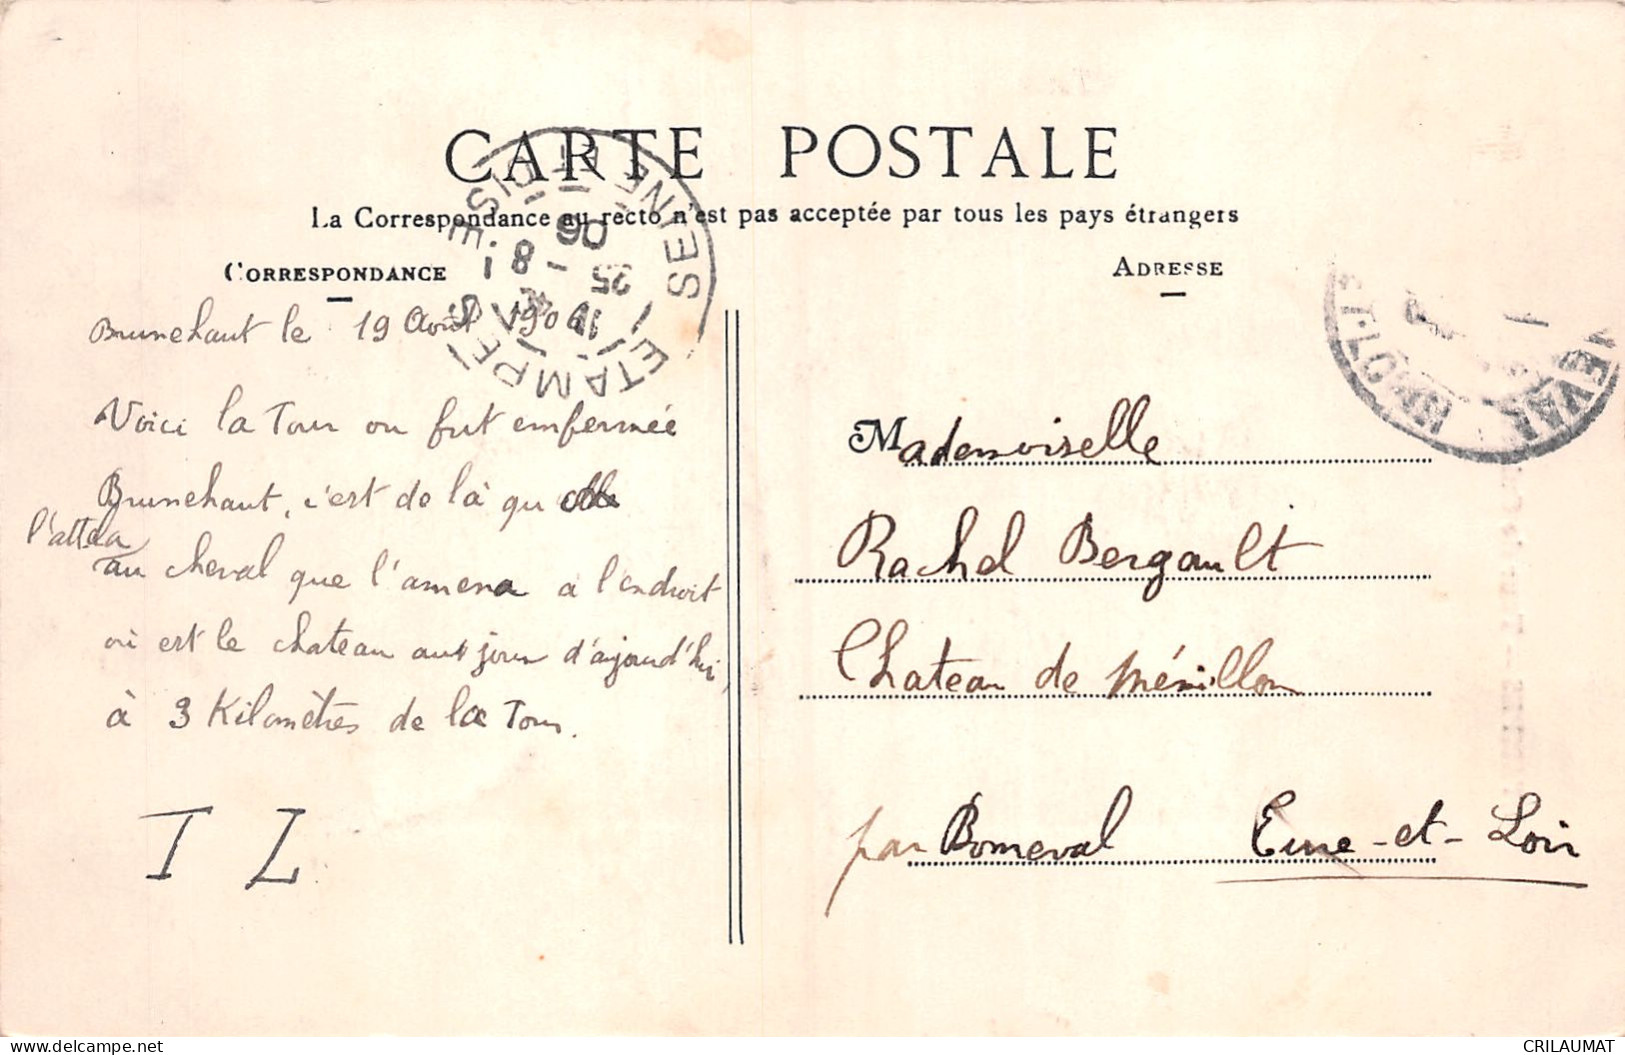 CARTE POSTALE
La Correspondance au recto n'est pas acceptée par tous les pays étrangers
CORRESPONDANCE
Brunehaut le 19 Août 1906
Voici la Tour ou fut enfermée
Brunehaut, c'est de là qu
l'attela
au cheval que l'amena a l'endroit
où est le chateau aus jour d'aujourd'hui,
à 3 Kilomètres de la Tour.
T L
ETAMPES SEINE-ET-OISE
19 - 8
06
ADRESSE
Mademoiselle
Rachel Bergault
Chateau de Ménillon
par Bonneval Eure-et-Loir
delcampe.net
CRILAUMAT